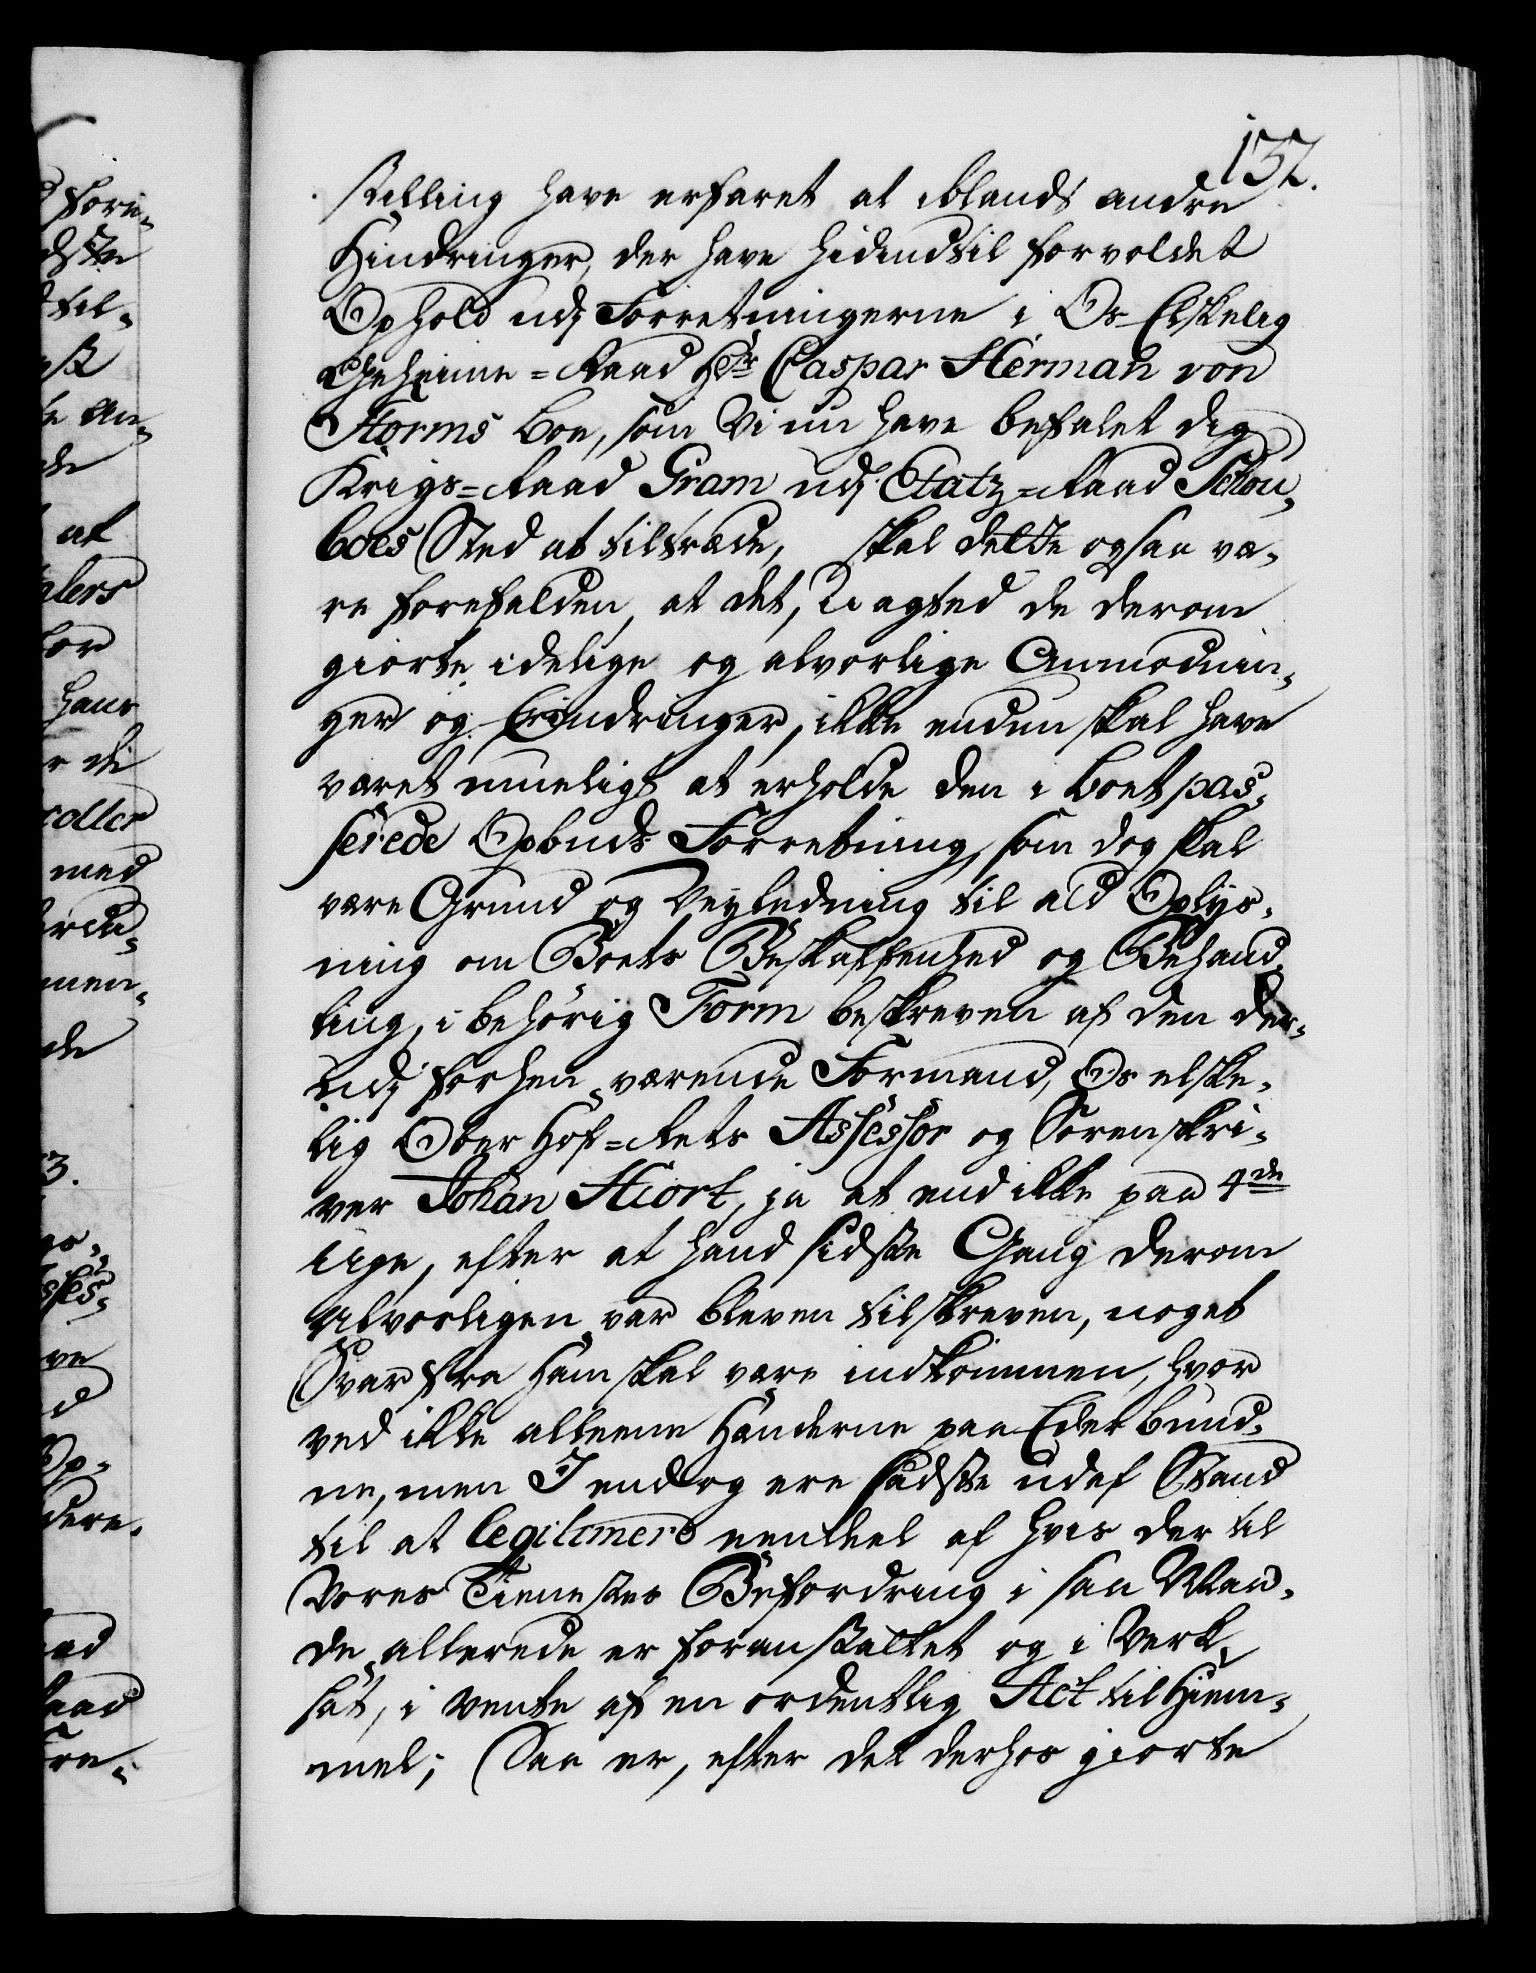 132.
stilling have erfaret at iblandt andre
Hindringer, der have hidindtil forvoldet
Ophold udj Forretningerne i Os Elskelig
Geheime=Raad Hr Caspar Herman von
Storms Boe, som Vi nu have befalet dig
Krigs=Raad Gram udj Etatz=Raad Schou-
boes Sted at tiltræde, skal dette ogsaa væ-
re forefalden, at det, Uagted de derom
giorte idelige og alvorlige Anmodnin-
ger og Erindringer, ikke enden skal have
været mueligt at erholde den i Boet pas-
serede Opbuds Forretning, som dog skal
være Grund og Veyledning til ald Oplys-
ning om Boets Beskaffenhed og Behand-
ling, i behörig Form beskreven af den der-
udj forhen værende Formand, Os elske-
lig Ober Hof=Rets Assessor og Sorenskri-
ver Johan Hiort, ja at end ikke paa 4de
Uge, efter at hand sidste Gang derom
Alvorligen var bleven tilskreven, noget
Svar fra ham skal være indkommen, hvor
ved ikke alleene Hænderne paa Eder bund-
ne, men I endog ere sadste udaf Stand
til at legitimere eendeel af hvis der til
Vores Tienestes Befordring i saa Maa-
de allerede er foranstaltet og i Verk
sat, i Vente af en ordentlig Act til Hiem-
mel; Saa er, efter det derhos giorte
fore-
dste
til-
An-
de
at
for
hans
med
men-
de
3.
ve
d
Op-
dere.